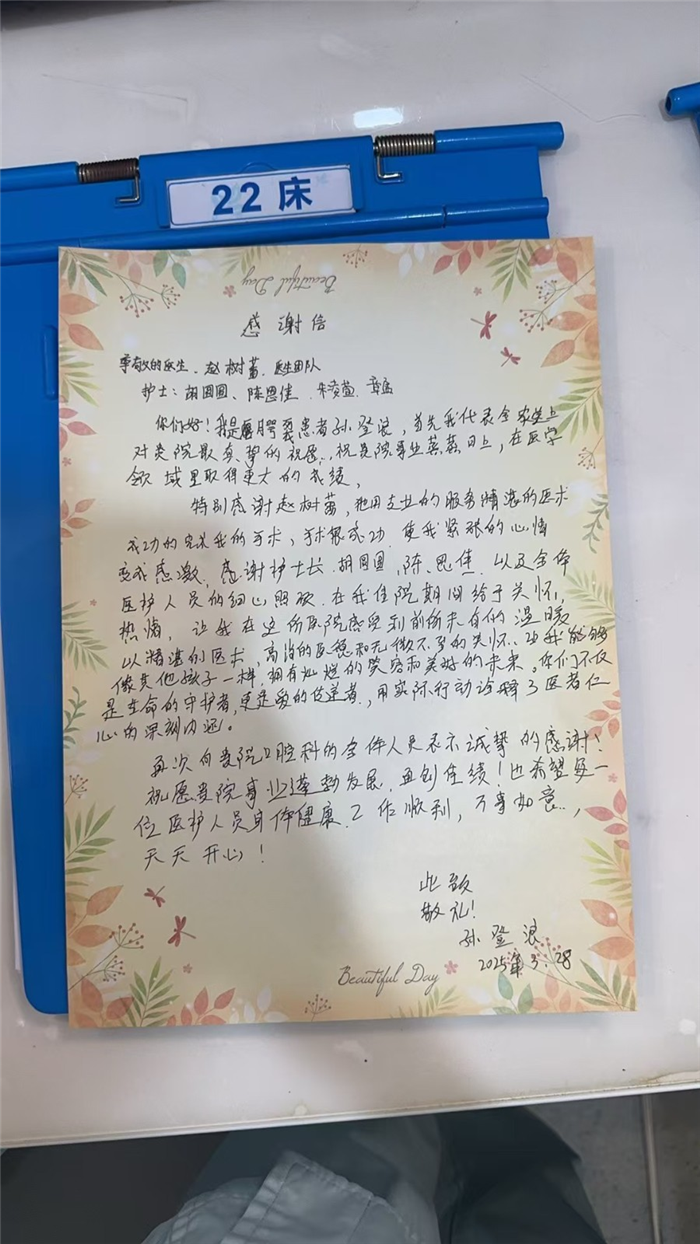 22床
Beautiful Day
感谢信
尊敬的医生、赵树苗、医生团队
护士：胡圆圆、陈思佳、朱凌萱
你们好！我是唇腭裂患者孙登浪，首先我代表全家送上
对贵院最真挚的祝愿，祝贵院事业蒸蒸日上，在医学
领域里取得更大的成绩，
特别感谢赵树苗，他用专业的服务精湛的医术
成功的完成我的手术，手术很成功，使我紧张的心情
变成感激，感谢护士长、胡圆圆，陈思佳，以及全体
医护人员的细心照顾，在我住院期间给予关怀，
热情，让我在这所医院感受到前所未有的温暖
以精湛的医术，高尚的医德和无微不至的关怀、让我能够
像其他孩子一样，拥有灿烂的笑容和美好的未来。你们不仅
是生命的守护者，更是爱的传递者，用实际行动诠释了医者仁
心的深刻内涵。
再次向贵院口腔科的全体人员表示诚挚的感谢！
祝愿贵院事业蓬勃发展，再创佳绩！也希望每一
位医护人员身体健康，工作顺利，万事如意，
天天开心！
此致
敬礼！
孙登浪
2025年3.28
Beautiful Day